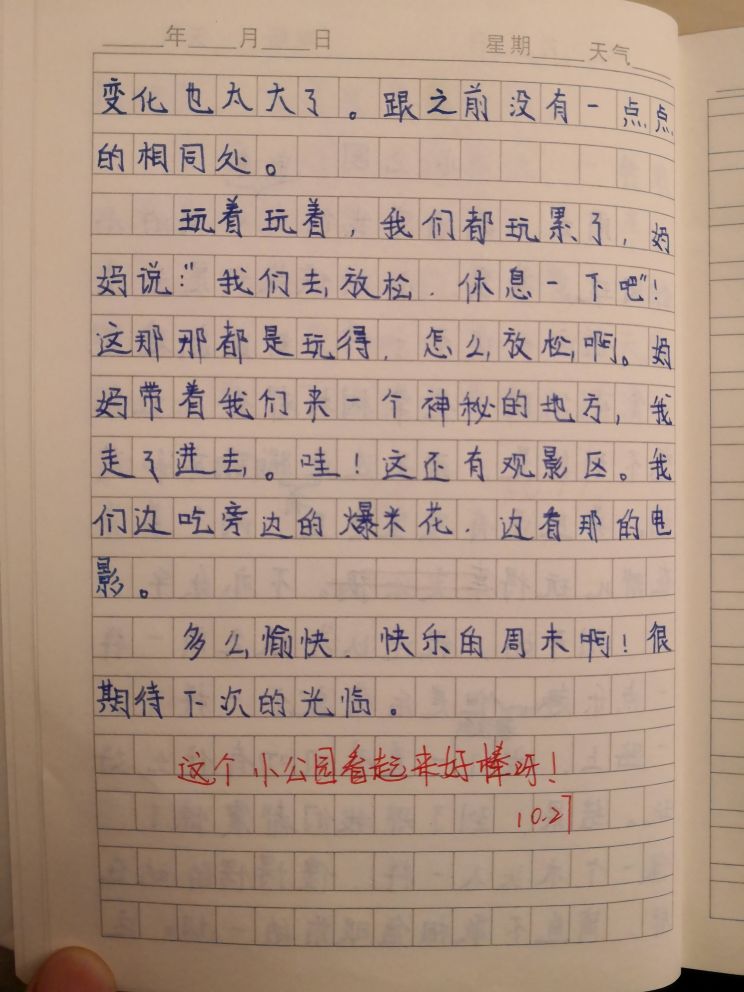 年 月 日 星期 天气
变化也太大了。跟之前没有一点点
的相同处。
玩着玩着，我们都玩累了，妈
妈说："我们去放松．休息一下吧"！
这那那都是玩得．怎么放松啊。妈
妈带着我们来一个神秘的地方，我
走了进去。哇！这还有观影区。我
们边吃旁边的爆米花．边有那的电
影。
多么愉快．快乐的周末啊！很
期待下次的光临。
这个小公园看起来好棒呀！
10.27